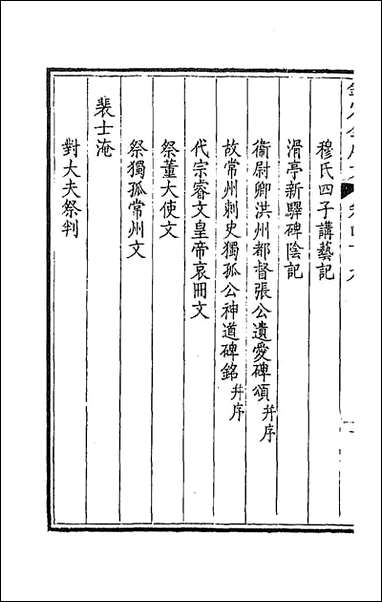 穆氏四子講藝記
滑亭新驛碑陰記
衞尉卿洪州都督張公遺愛碑頌并序
故常州刺史獨孤公神道碑銘并序
代宗睿文皇帝哀冊文
祭董大使文
祭獨孤常州文
裴士淹
對大夫祭判